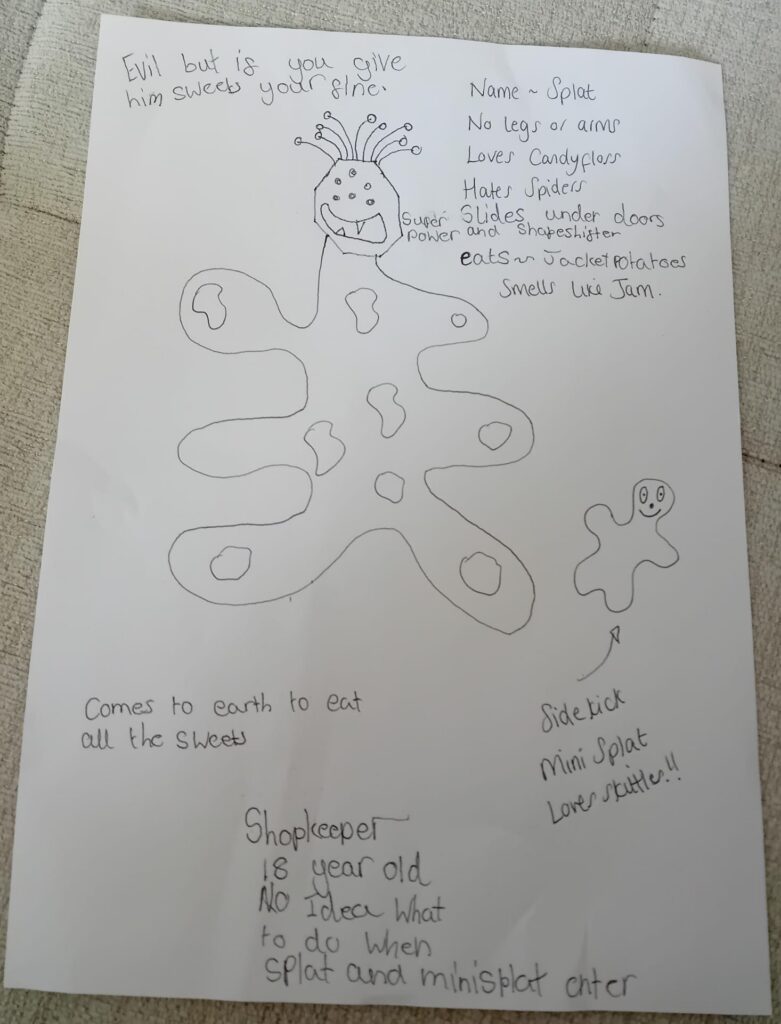 Evil but is you give
him sweets your fine.
Name ~ Splat
No legs or arms
Loves Candyfloss
Hates Spiders
Super Slides under doors
power and Shapeshifter
eats ~ Jacket Potatoes
Smells like Jam.
Sidekick
Mini Splat
Loves skittles!!
Comes to earth to eat
all the sweets
Shopkeeper
18 year old
No Idea What
to do when
Splat and minisplat enter